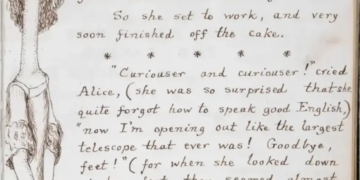 So she set to work, and very
soon finished off the cake.
* * * * *
"Curiouser and curiouser!" cried
Alice, (she was so surprised that she
quite forgot how to speak good English,)
"now I'm opening out like the largest
telescope that ever was! Goodbye,
feet!" (for when she looked down
almost